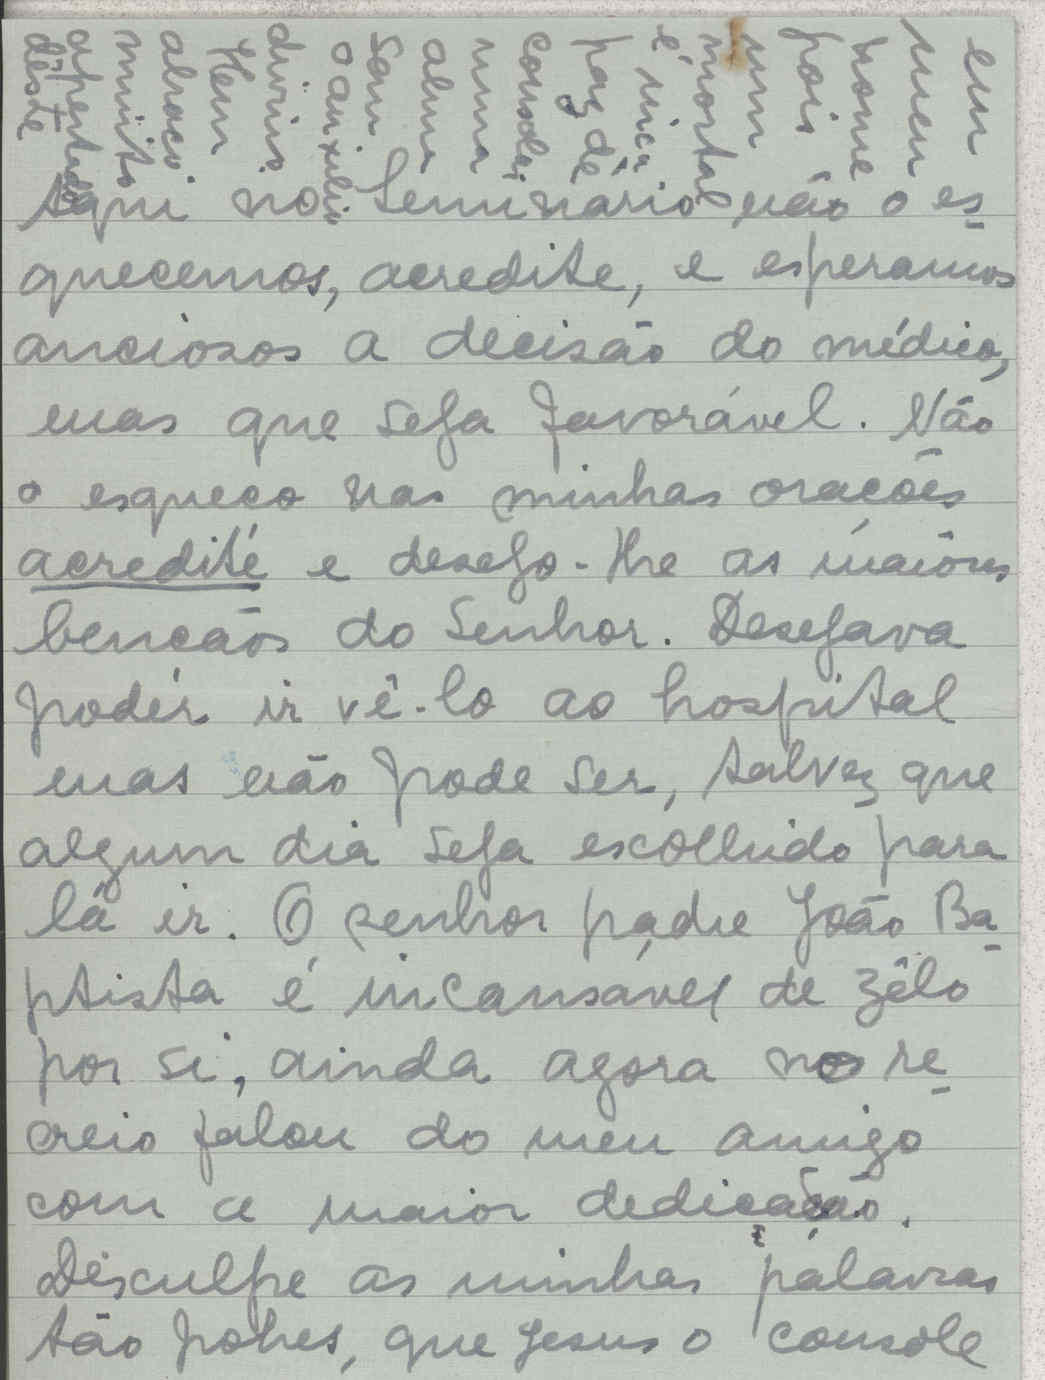 Aqui no Seminário não o es-
quecemos, acredite, e esperamos
anciosos a decisão do médico,
mas que seja favorável. Não
o esqueço nas minhas orações
acredite e desejo-lhe as maiores
bençãos do Senhor. Desejava
poder ir vê-lo ao hospital
mas não pode ser, talvez que
algum dia seja escolhido para
lá ir. O senhor padre João Ba-
ptista é incansável de zêlo
por si, ainda agora no re-
creio falou do meu amigo
com a maior dedicação.
Desculpe as minhas palavras
tão pobres, que Jesus o console
em
meu
nome
pois
um
mortal
é inca
paz de
consolar
uma
alma
sem
o auxílio
divino
Um
abraço
muito
apertado
dêste